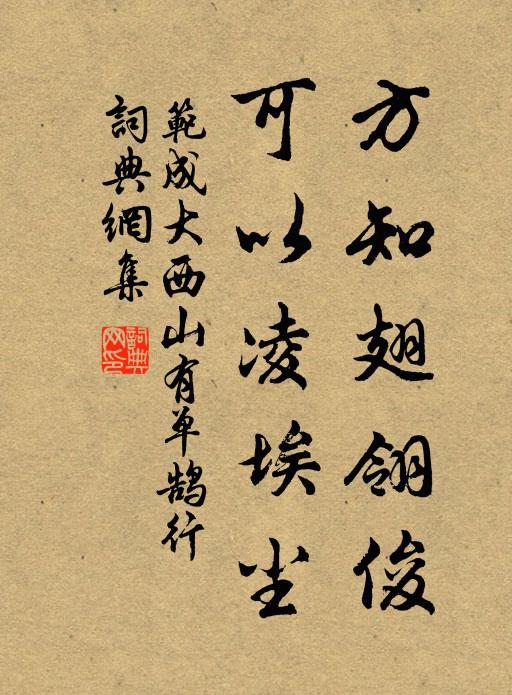 方知翅翎俊
可以凌埃尘
範成大西山有单鹄行
詞典網集
詞典网印